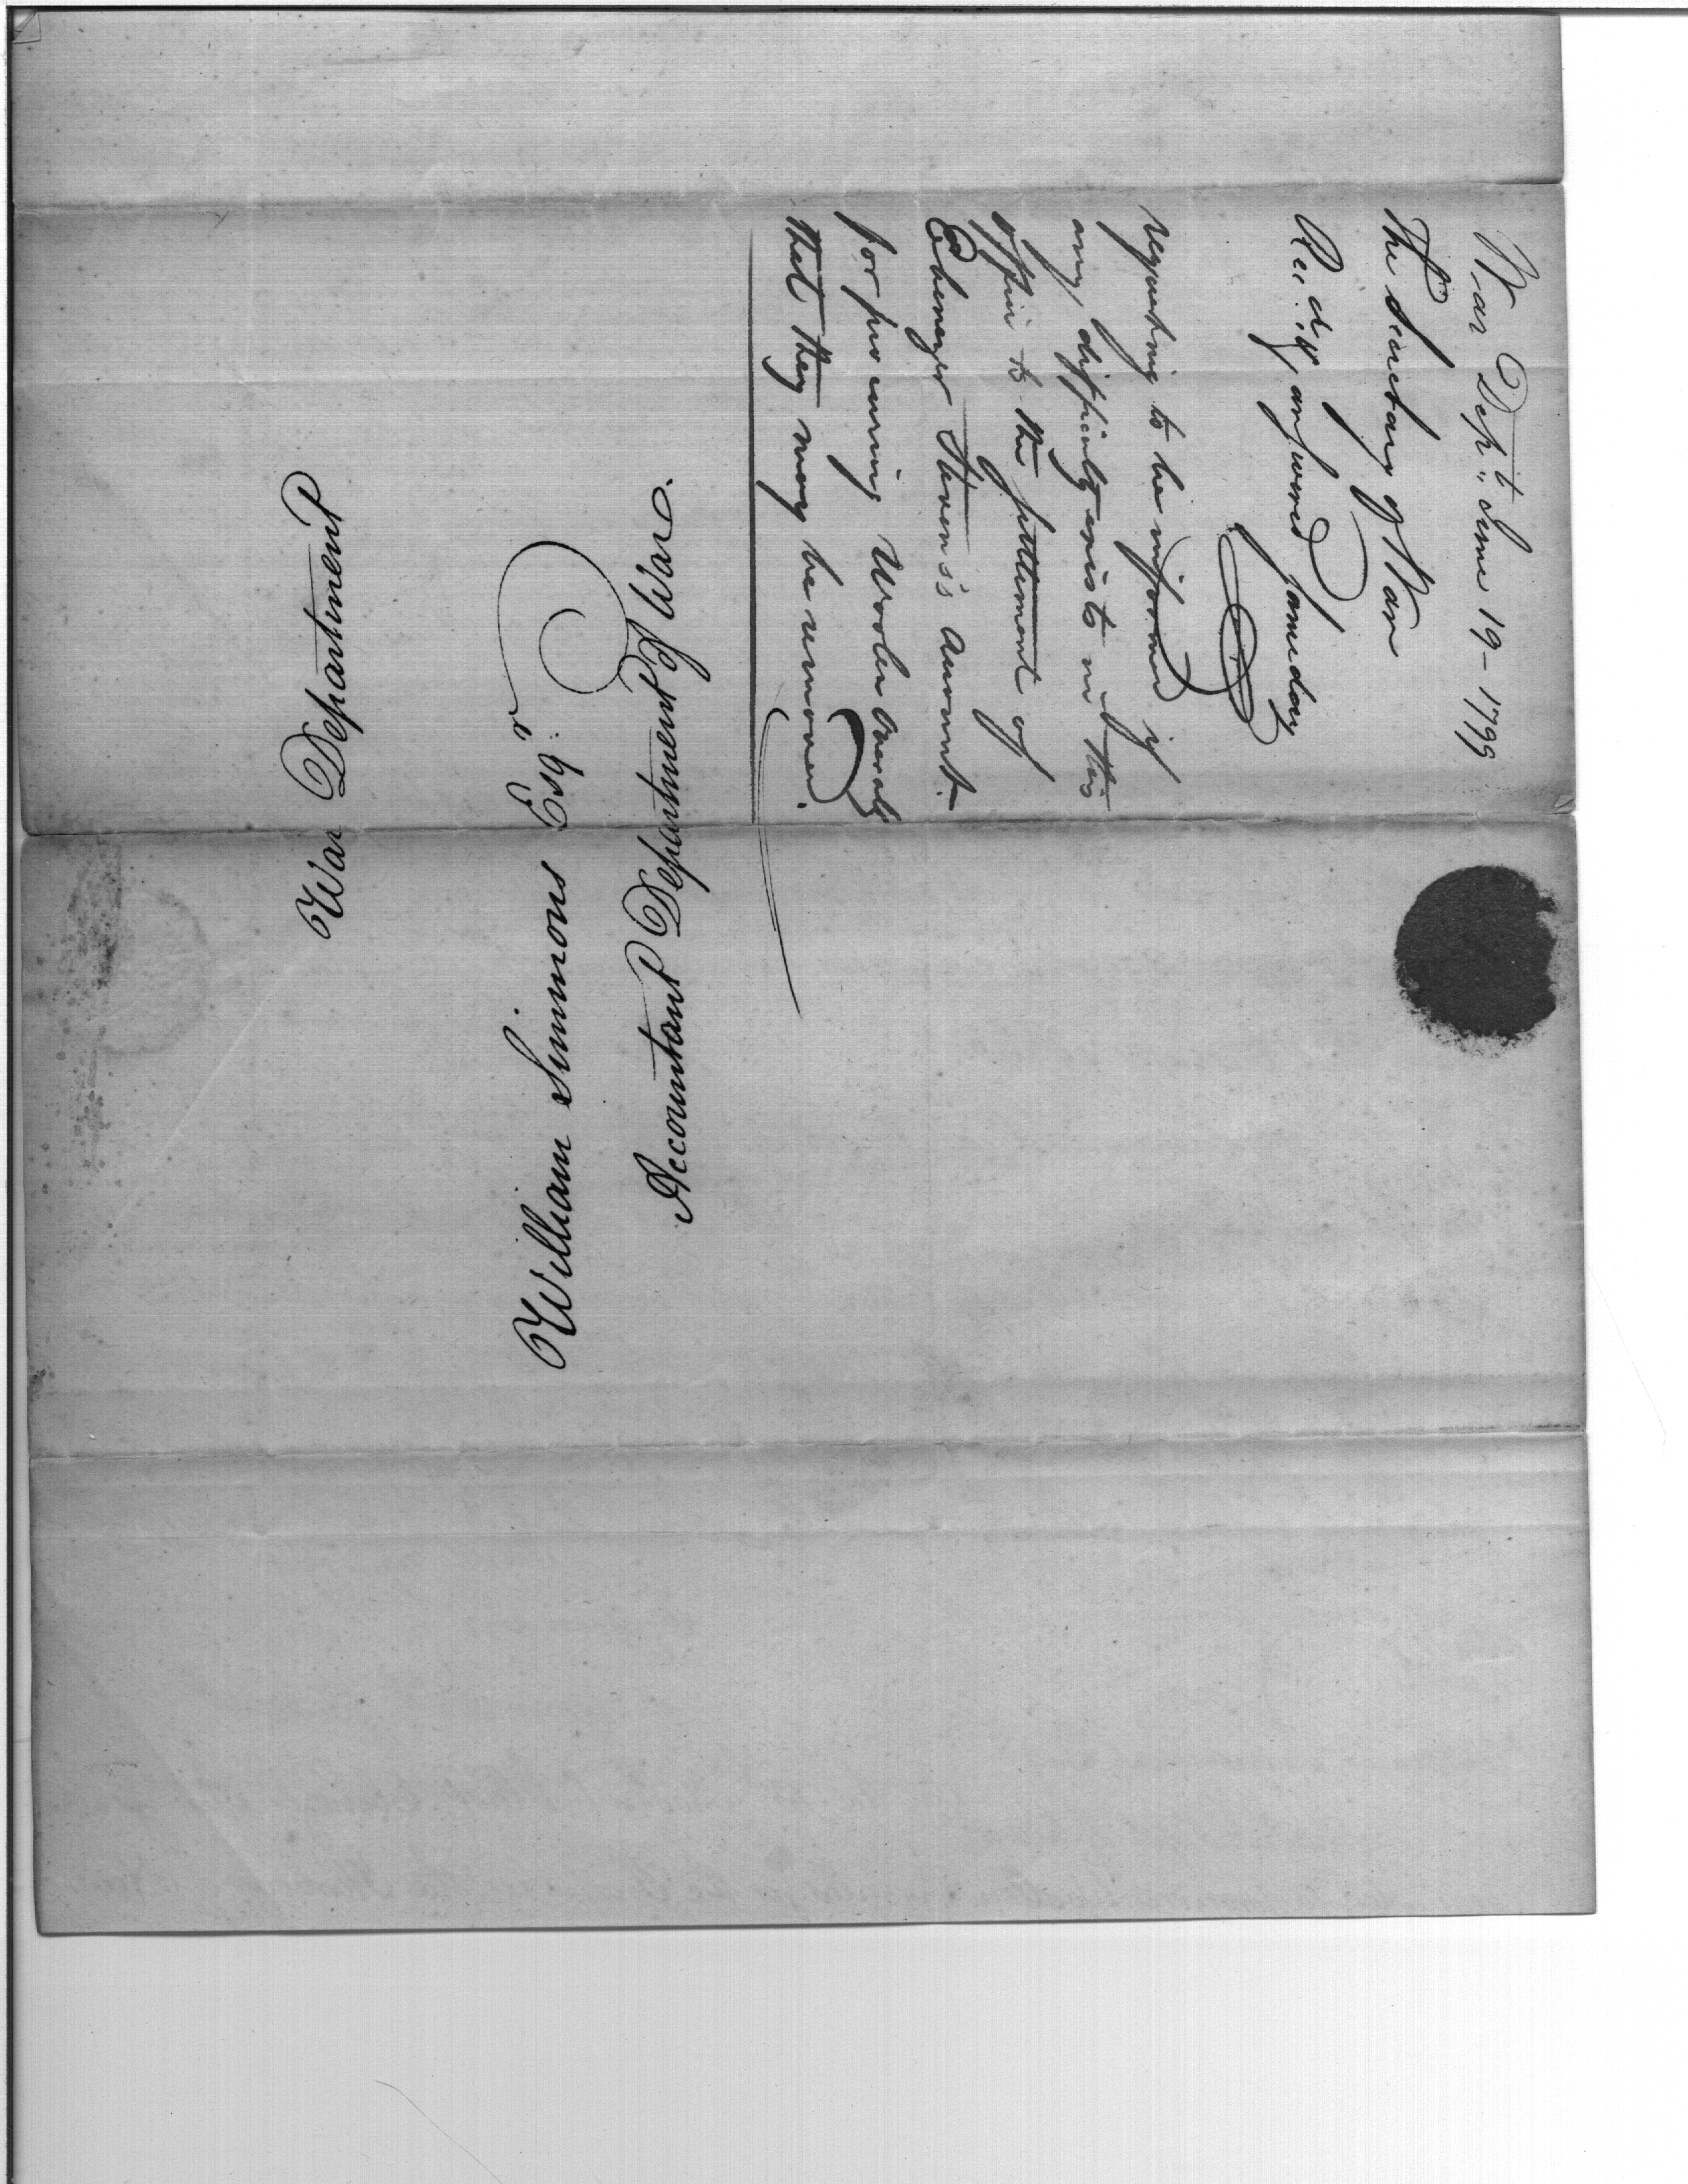 War Dept. June 19 - 1799
The Secretary of War
Rec.d & answered same day
requesting to be informed if
any difficulty exists in this
office to the settlement of
Ebenezer Stevens's account
for procuring Woolen Overalls
that they may be removed.
War Department
William Simmons Esqr.
Accountant Department of War.